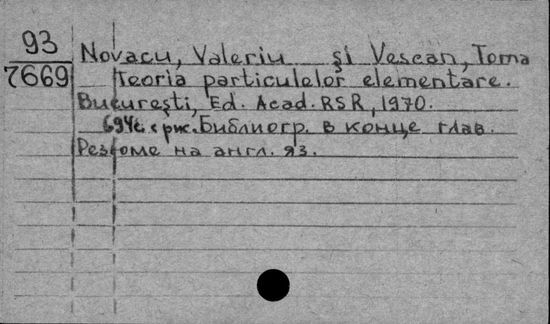 93
7669
Novacu, Valeriu şi Vescan, Toma
Teoria particulelor elementare.
Bucureşti, Ed. Acad. RSR, 1970.
694с. с рис. Библиогр. в конце глав.
Резюме на англ. яз.